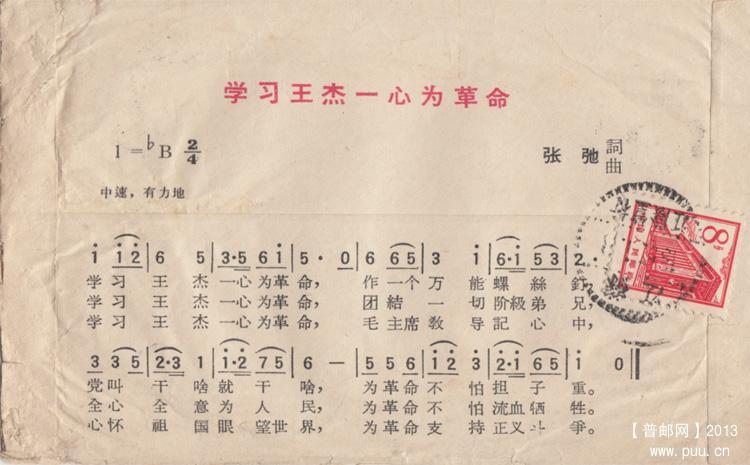 学习王杰一心为革命
1=♭B 2/4
张弛 詞曲
中速，有力地
i i2 | 6 5 | 3·5 6i | 5· 0 | 6 65 | 3 i | 6·i 53 | 2·
学习王杰一心为革命，作一个万能螺絲釘，
学习王杰一心为革命，团結一切阶級弟兄，
学习王杰一心为革命，毛主席教导記心中，
3 35 | 2·3 1 | i·2 75 | 6 — | 5 56 | i2 3 | 2·i 65 | i 0
党叫干啥就干啥，为革命不怕担子重。
全心全意为人民，为革命不怕流血牺牲。
心怀祖国眼望世界，为革命支持正义斗爭。
8
【普邮网】2013
www.puu.cn